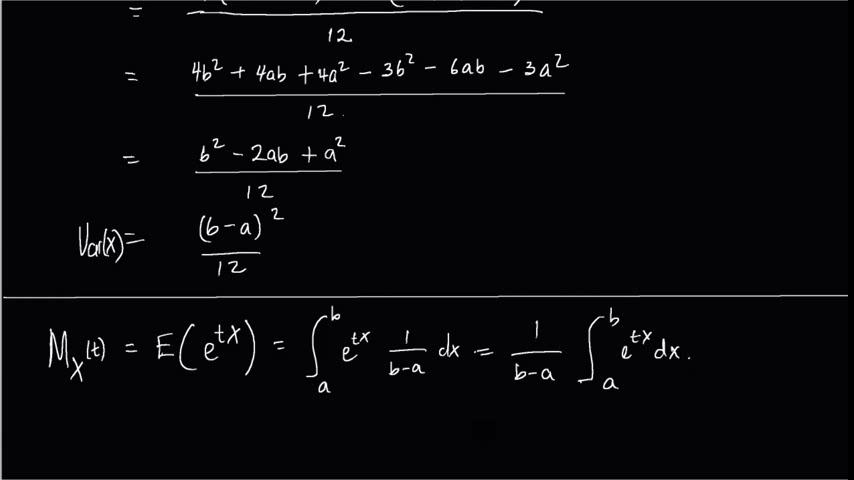 = 12
= 4b² + 4ab + 4a² - 3b² - 6ab - 3a² / 12.
= b² - 2ab + a² / 12
Var(x) = (b-a)² / 12
M_X(t) = E(e^{tX}) = ∫_a^b e^{tx} 1/(b-a) dx = 1/(b-a) ∫_a^b e^{tx} dx.